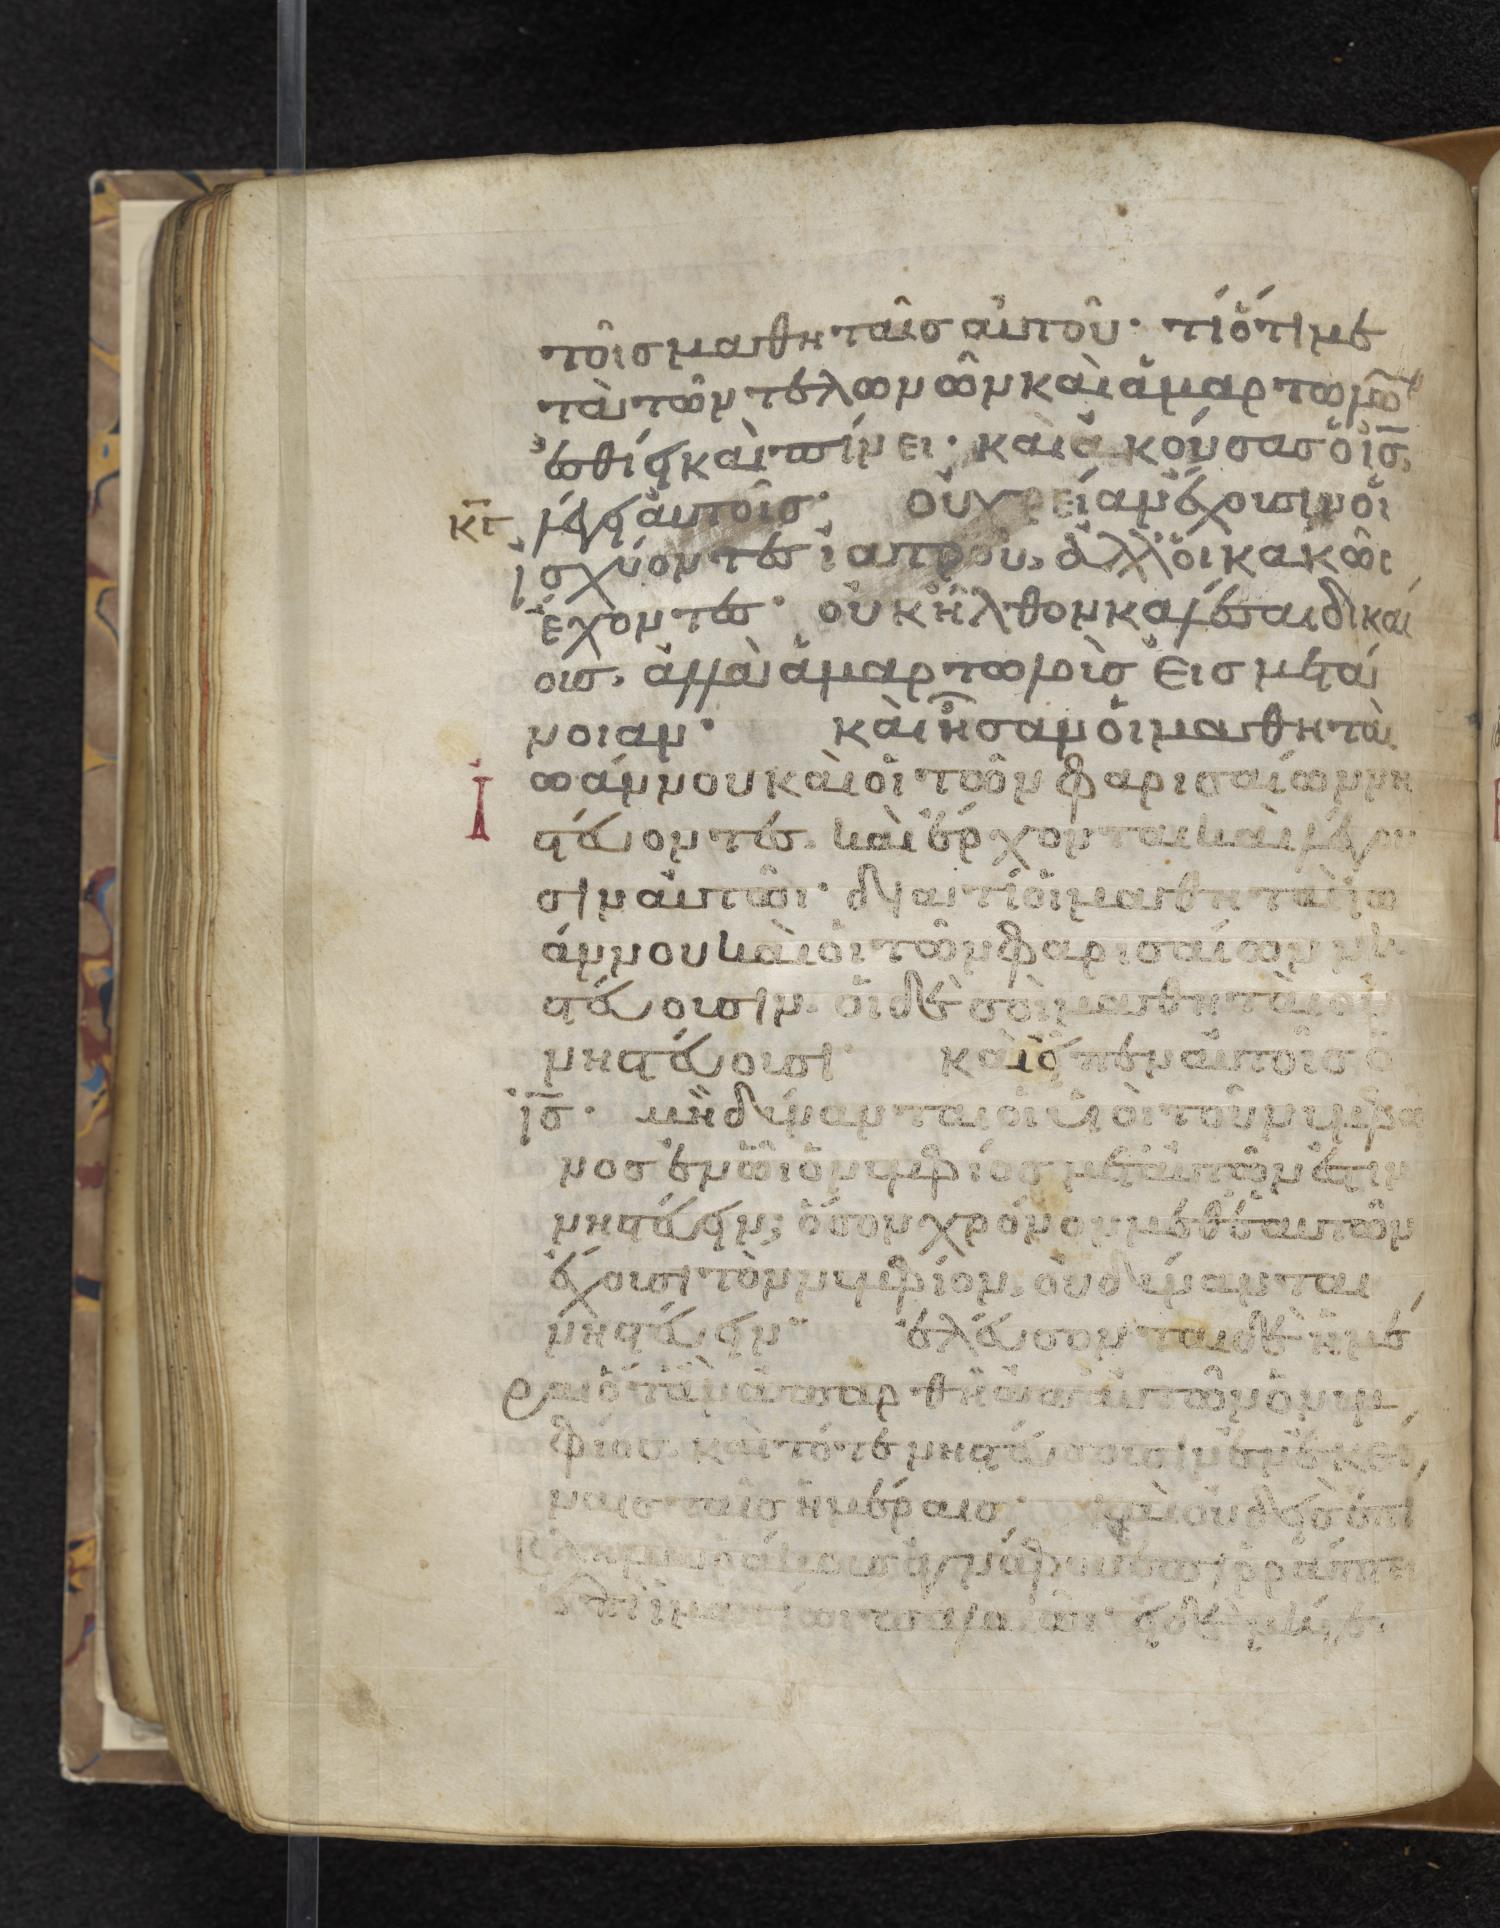 τοῖς μαθηταῖς αὐτοῦ· τί ὅτι με
τὰ τῶν τελωνῶν καὶ ἁμαρτωλῶ
ἐσθίει καὶ πίνει· καὶ ἀκούσας ὁ ις,
κγ λέγει αὐτοῖς· οὐ χρείαν ἔχουσιν οἱ
ἰσχύοντες ἰατροῦ, ἀλλ' οἱ κακῶς
ἔχοντες· οὐκ ἦλθον καλέσαι δικαί
ους, ἀλλὰ ἁμαρτωλοὺς εἰς μετά
νοιαν· καὶ ἦσαν οἱ μαθηταὶ
Ἰ ωάννου καὶ οἱ τῶν φαρισαίων νη
στεύοντες, καὶ ἔρχονται καὶ λέγου
σιν αὐτῶι· διατί οἱ μαθηταὶ ἰω
άννου καὶ οἱ τῶν φαρισαίων νη
στεύουσιν, οἱ δὲ σοὶ μαθηταὶ οὐ
νηστεύουσι· καὶ εἶπεν αὐτοῖς ὁ
ις· μὴ δύνανται οἱ υἱοὶ τοῦ νυμφῶ
νος ἐν ὧι ὁ νυμφίος μετ' αὐτῶν ἐστιν
νηστεύειν; ὅσον χρόνον μεθ' ἑαυτῶν
ἔχουσι τὸν νυμφίον, οὐ δύνανται
νηστεύειν· ἐλεύσονται δὲ ἡμέ
ραι ὅταν ἀπαρθῆ ἀπ' αὐτῶν ὁ νυμ
φίος, καὶ τότε νηστεύσουσιν ἐν ἐκεί
ναις ταῖς ἡμέραις· καὶ οὐδεὶς ἐπί
βλημα ῥάκους ἀγνάφου ἐπιρράπτει
ἐπὶ ἱματίωι παλαιῶι· εἰ δὲ μή γε,